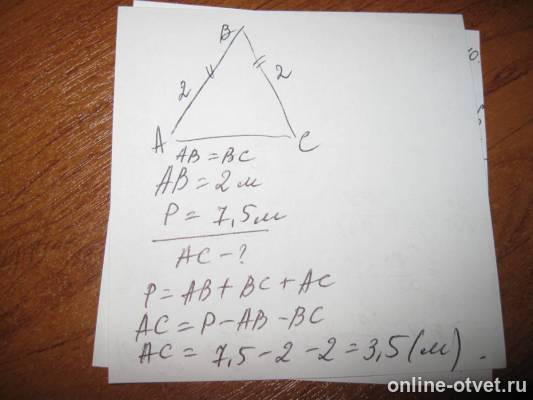 B
2 2
A C
AB = BC
AB = 2 м
P = 7,5 м
AC - ?
P = AB + BC + AC
AC = P - AB - BC
AC = 7,5 - 2 - 2 = 3,5 (м).
online-otvet.ru